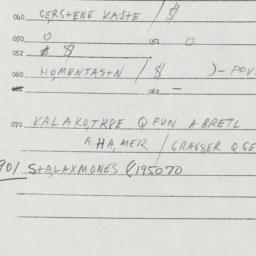 040 GERSTENE KASTE / $
050 O 051 O
052 $
060 HOMENTASTN / $ )- POV
062 -
070 KALAKOTKPE Q FUN A BRETL
A HA,MER / GRAESER Q GE
901 STA,LAXMONES (195070